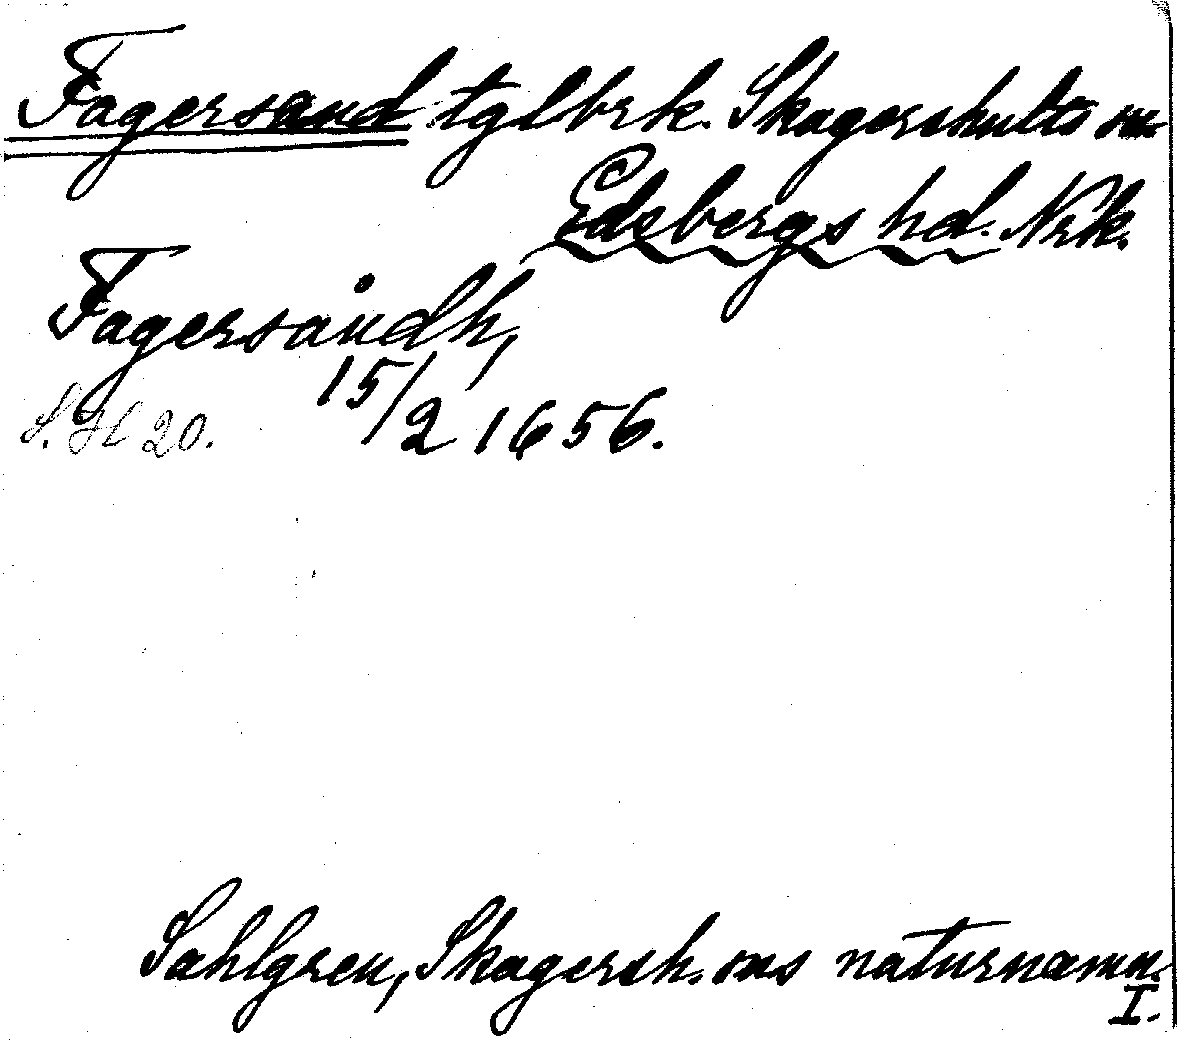 Fagersand tglbrk. Skagershults sn
Edsbergs hd. Nrk.
Fagersåndh,
15/2 1656.
S. H 20.
Sahlgren, Skagersh. sns naturnamn.
I.